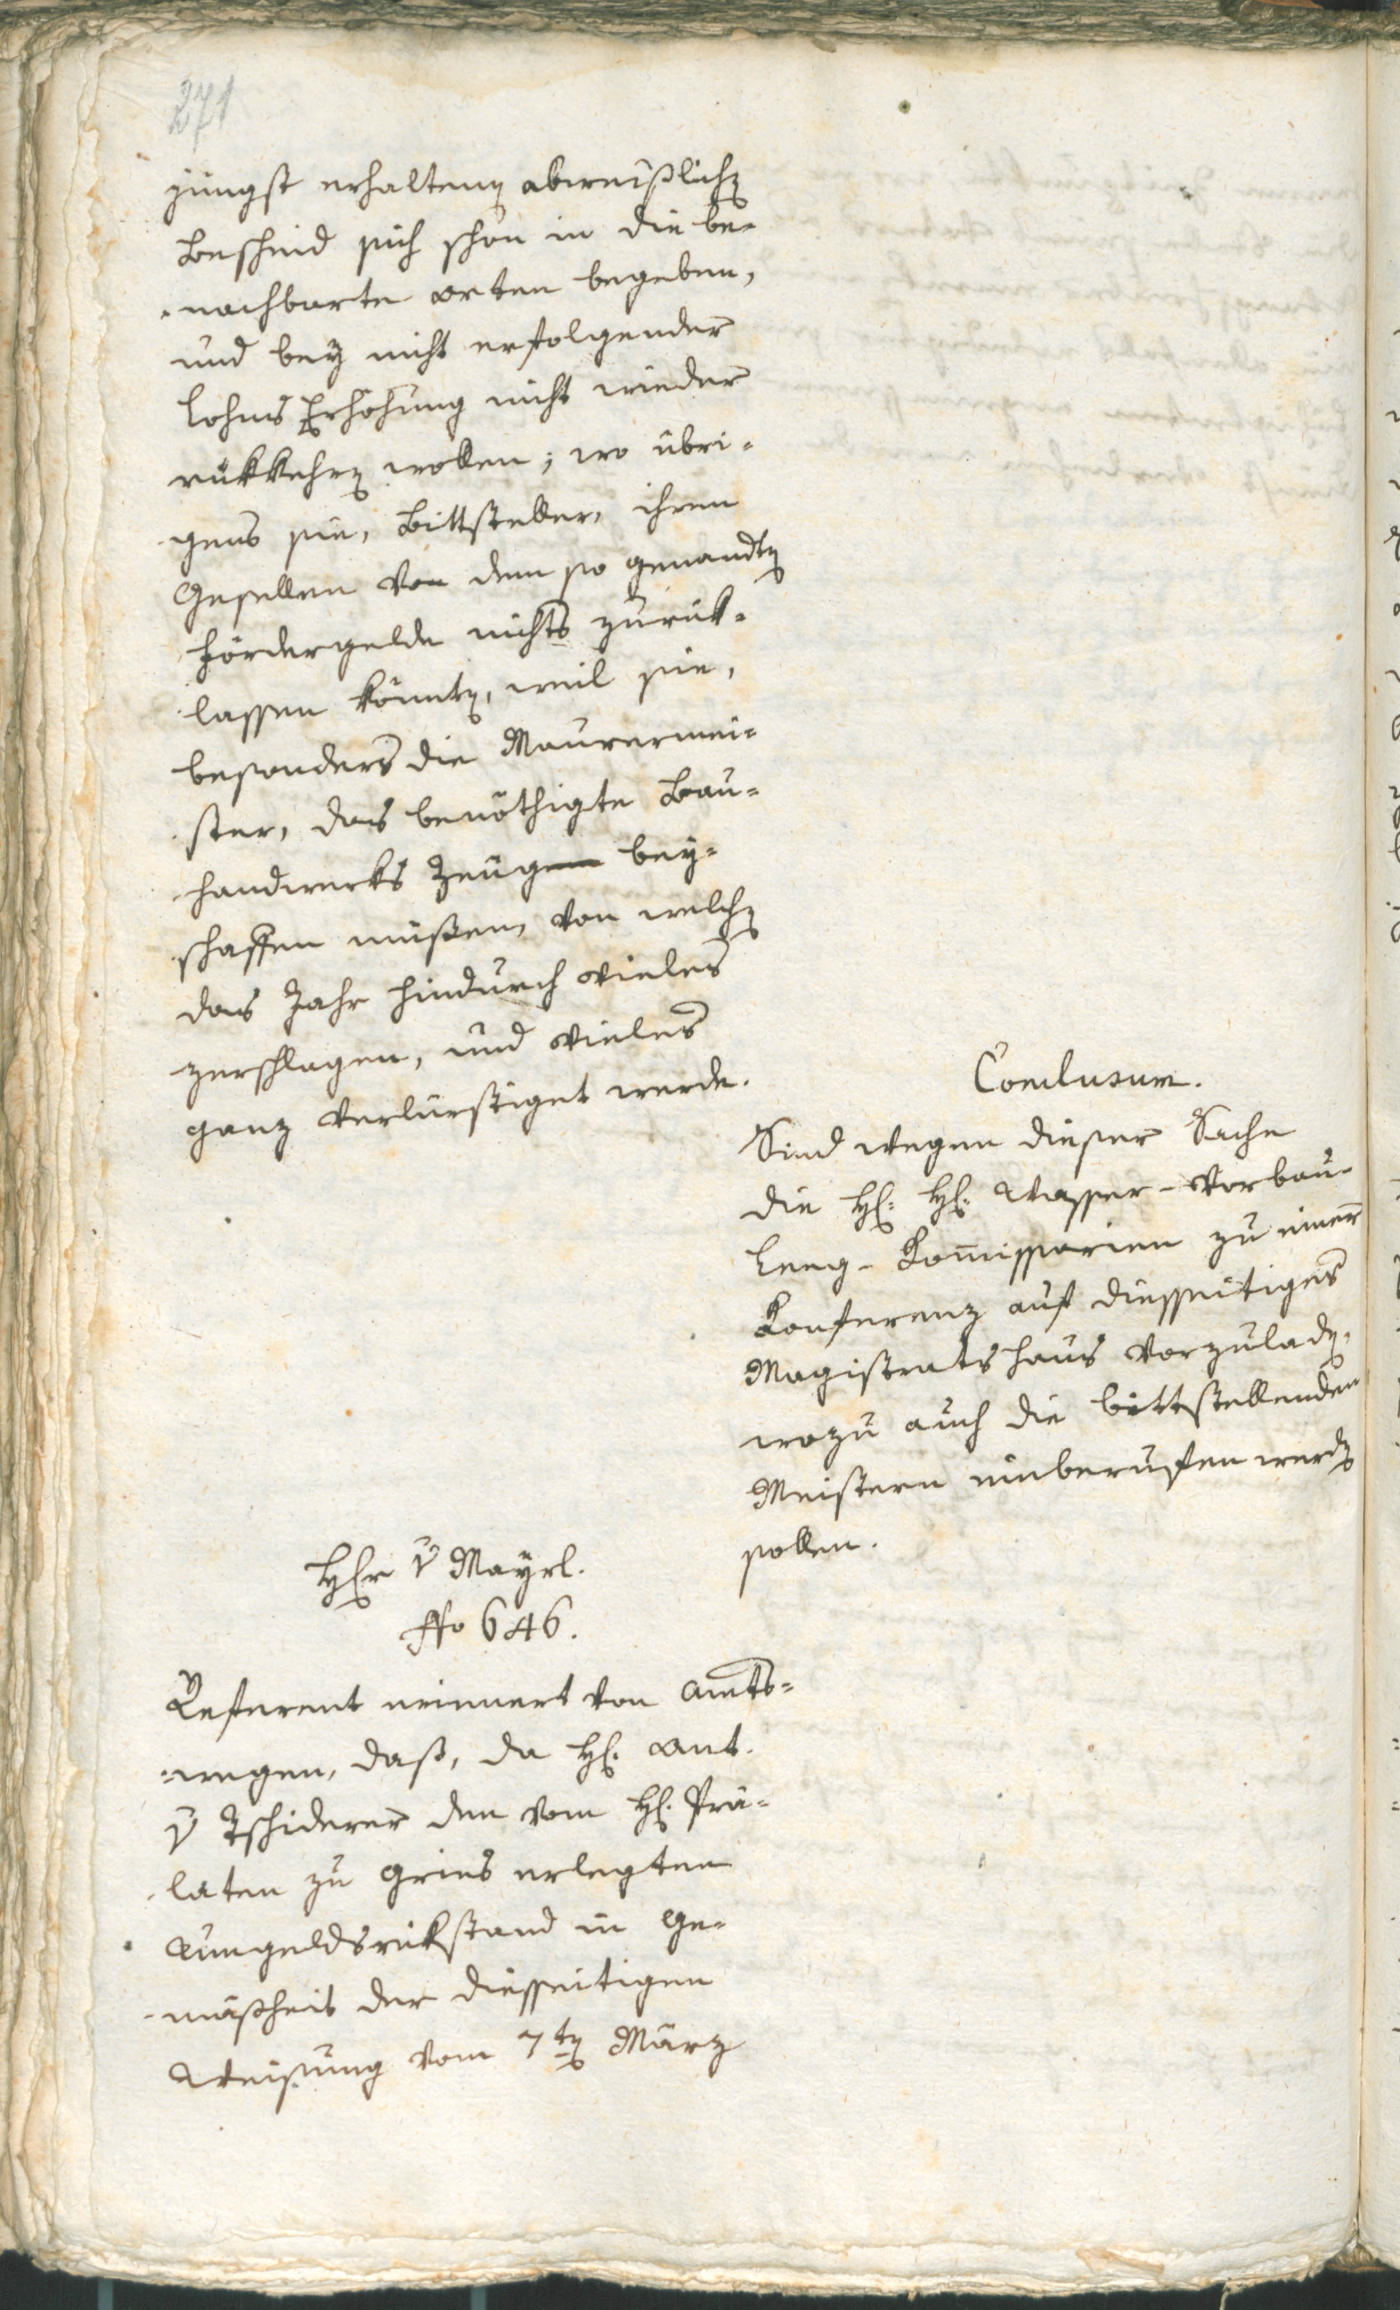 271
jüngst erhaltenen abweißlichen
Bescheid sich schon in die be-
nachbarte orten begeben,
und bey nicht erfolgender
Lohns Erhöhung nicht wieder
rükkehren wollen; wo übri-
gens sie, Bittsteller, ihren
Gesellen von dem so genandten
Fördergelde nichts zurük-
lassen könnten, weil sie,
besonders die Maurermei-
ster, das benöthigte Bau-
handwerks Zeug bey-
schaffen müßen, von welchen
das Jahr hindurch vieles
zerschlagen, und vieles
ganz verlürstiget werde.
Conclusum.
Sind wegen dieser Sache
die H: H: Wasser-Vorbau-
Leeg-Kommissarien zu einer
Konferenz auf diesseitiges
Magistratshaus vorzuladen,
wozu auch die bittstellenden
Meistern einberuffen werden
sollen.
Herr v Mayrl.
No 646.
Referent erinnert von Amts-
wegen, daß, da H: Ant.
v Tschiderer den vom H: Prä-
laten zu Gries erlegten
Umgeldsrükstand in Ge-
mäßheit der diesseitigen
Weisung vom 7ten März